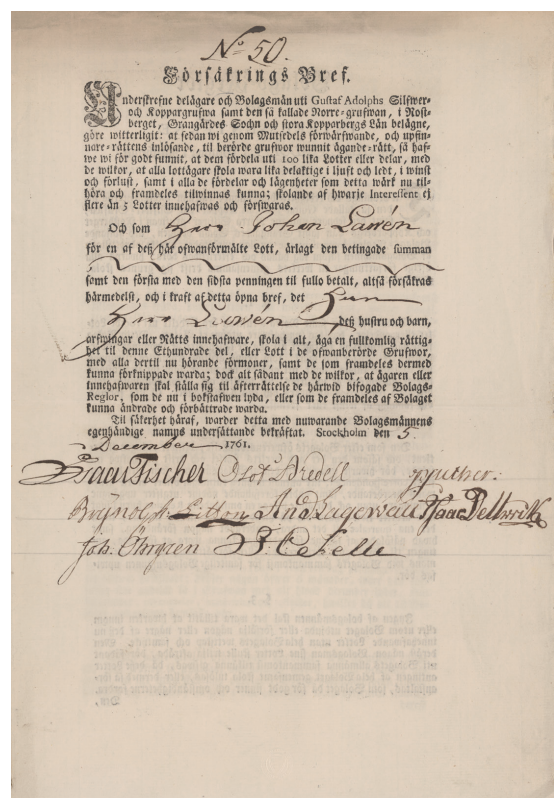 No 50.
Försäkrings Bref.
Underskrefne delägare och Bolagsmän uti Gustaf Adolphs Silfwer-
och Koppargrufwa samt den så kallade Norre-grufwan, i Rost-
berget, Grangärdes Sochn och stora Kopparbergs Län belägne,
göre witterligit: at sedan wi genom Mutsedels förwärfwande, och upfin-
nare-rättens inlösande, til berörde grufwor wunnit ägande-rätt, så haf-
we wi för godt funnit, at dem fördela uti 100 lika Lotter eller delar, med
de wilkor, at alla lottägare skola wara lika delaktige i ljuft och ledt, i winst
och förlust, samt i alla de fördelar och lägenheter som detta wärk nu til-
höra och framdeles tilwinnas kunna; skolande af hwarje Interessent ej
flere än 5 Lotter innehafwas och förswaras.
Och som Herr Johan Lawén
för en af deß här ofwanförmälte Lott, ärlagt den betingade summan
samt den första med den sidsta penningen til fullo betalt, altså försäkras
härmedelst, och i kraft af detta öpna bref, det Herr
Herr Lawén deß hustru och barn,
arfwingar eller Rätts innehafware, skola i alt, äga en fullkomlig rättig-
het til denne Ethundrade del, eller Lott i de ofwanberörde Grufwor,
med alla dertil nu hörande förmoner, samt de som framdeles dermed
kunna förknippade warda; dock alt sådant med de wilkor, at ägaren eller
innehafwaren skal ställa sig til äfterrättelse de härwid bifogade Bolags-
Reglor, som de nu i bokstafwen lyda, eller som de framdeles af Bolaget
kunna ändrade och förbättrade warda.
Til säkerhet häraf, warder detta med nuwarande Bolagsmännens
egenhändige namns undersättande bekräftat. Stockholm den 5
December 1761.
Isaac Fischer Olof Bredell
Brÿnolph And Lagerwall Isaac
Joh. Öhrgren